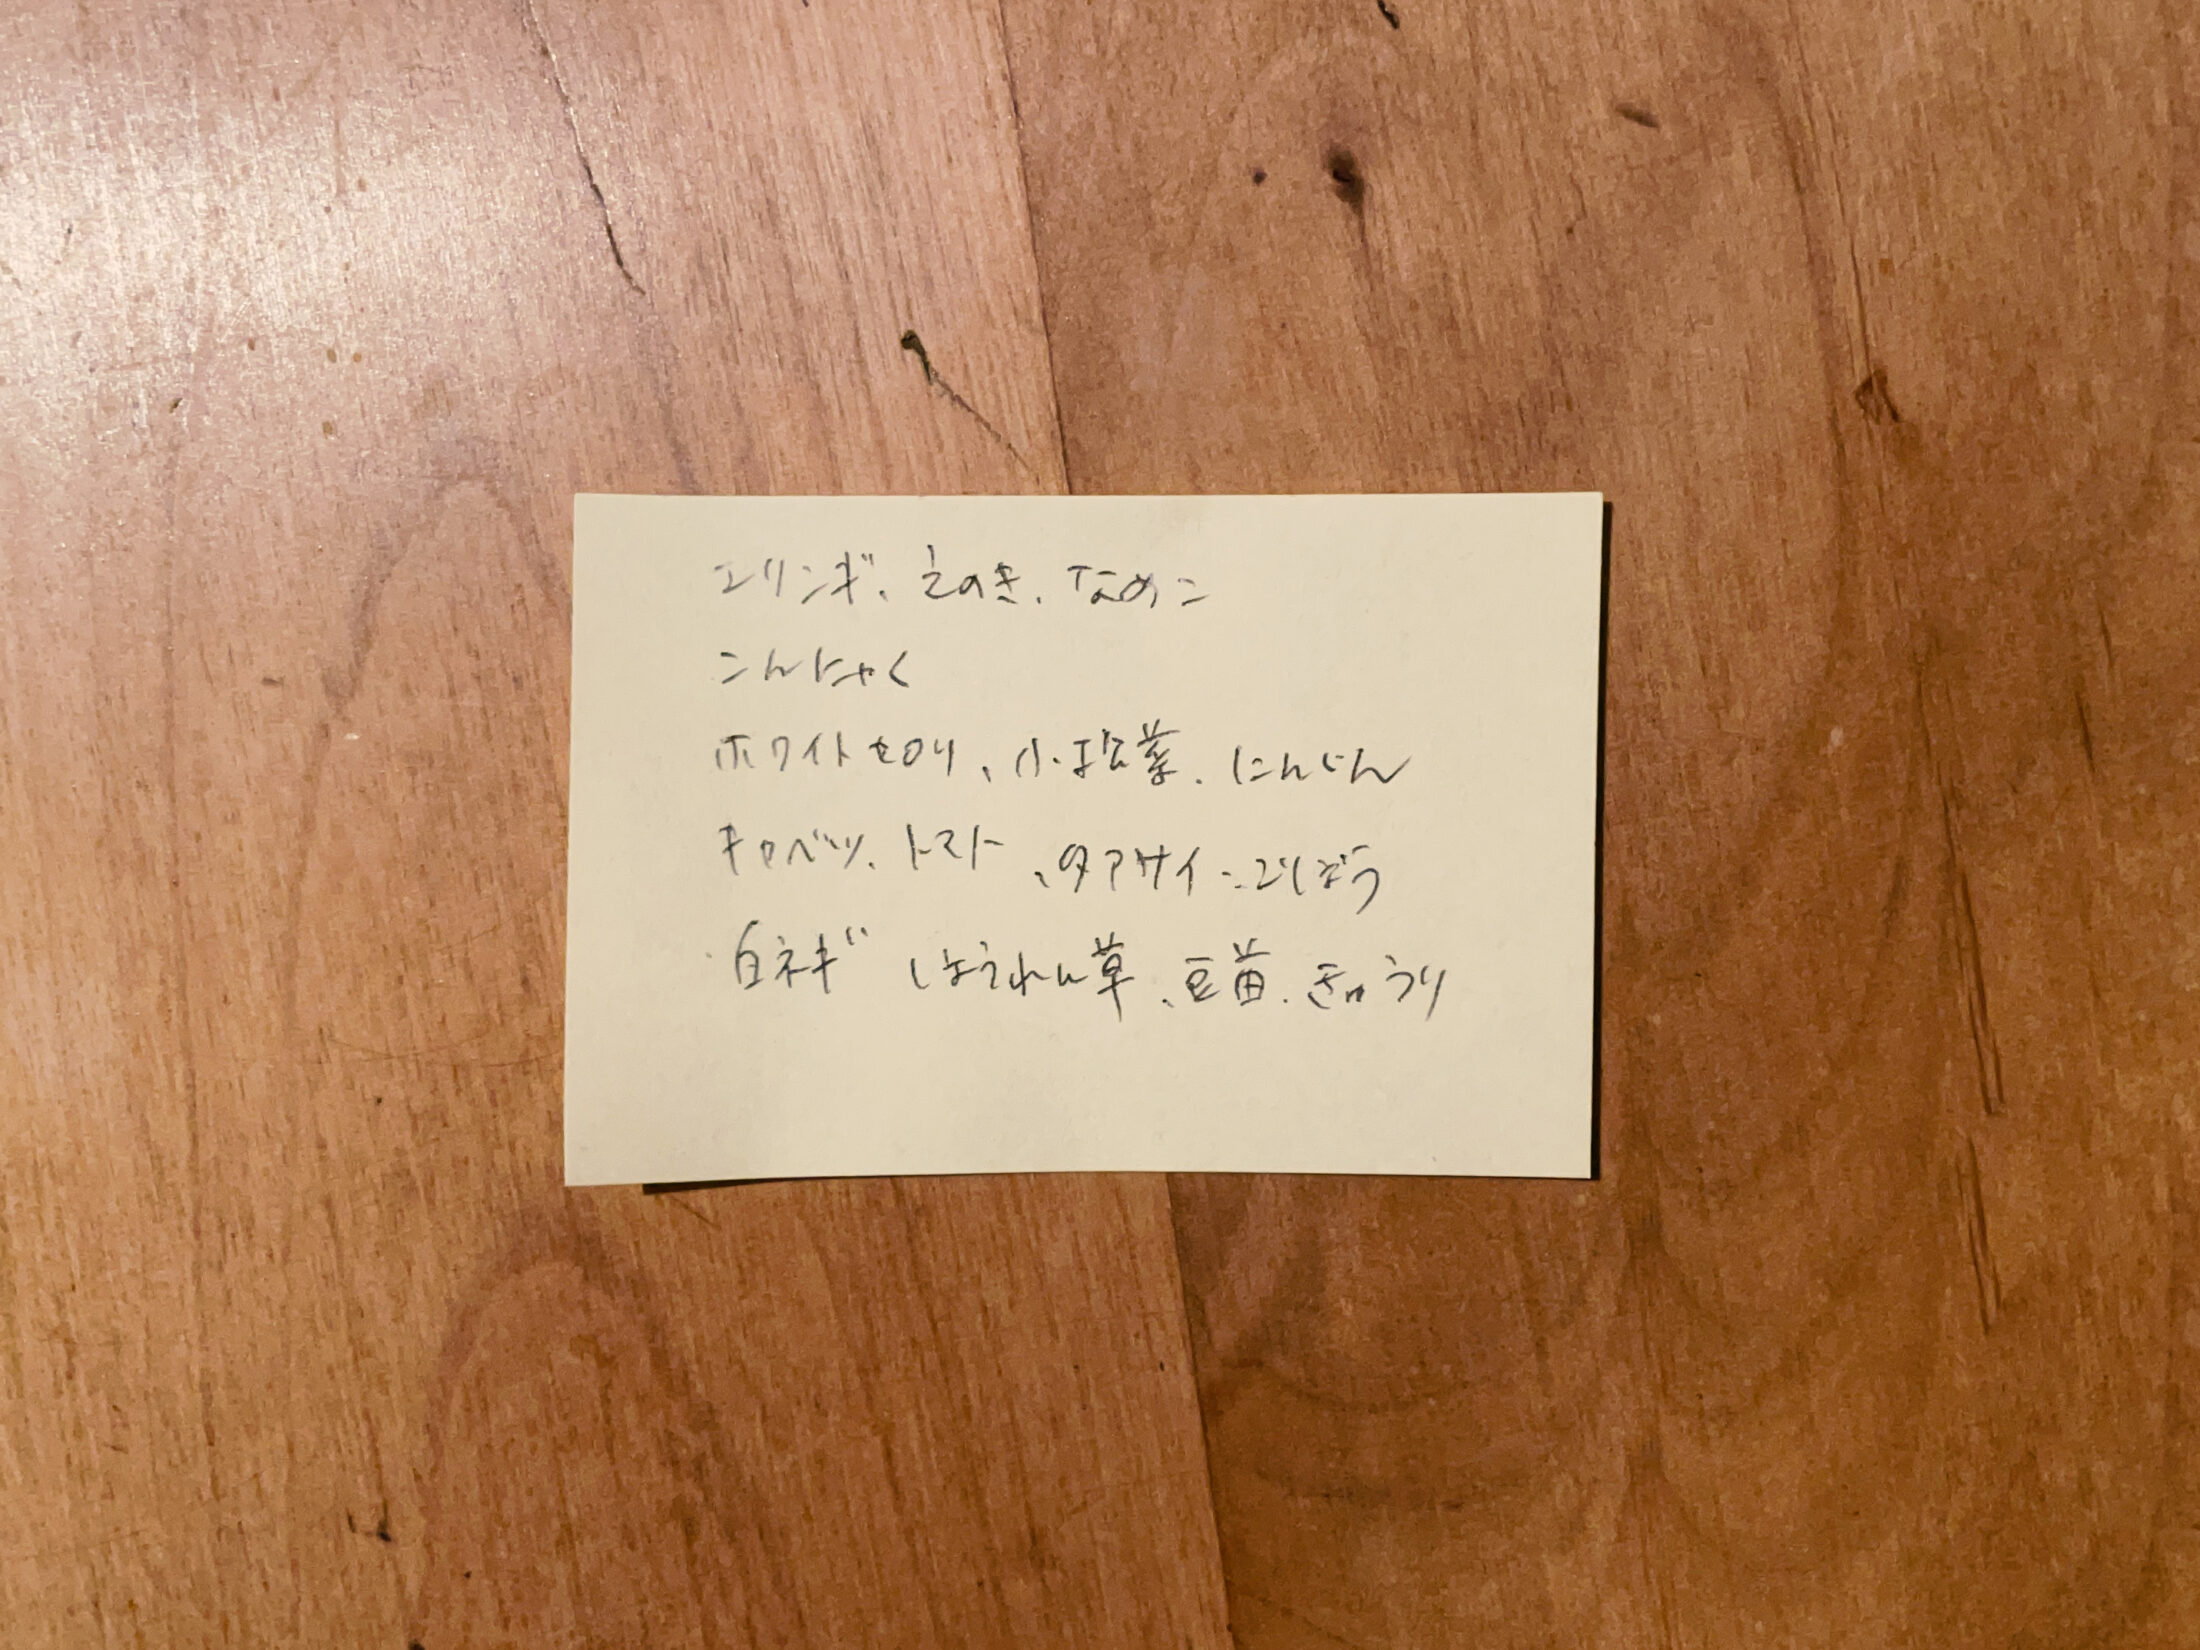 エリンギ、えのき、なめこ
こんにゃく
ホワイトセロリ、小松菜、にんじん
キャベツ、トマト、タアサイ、ごぼう
白ネギ ほうれん草、豆苗、きゅうり